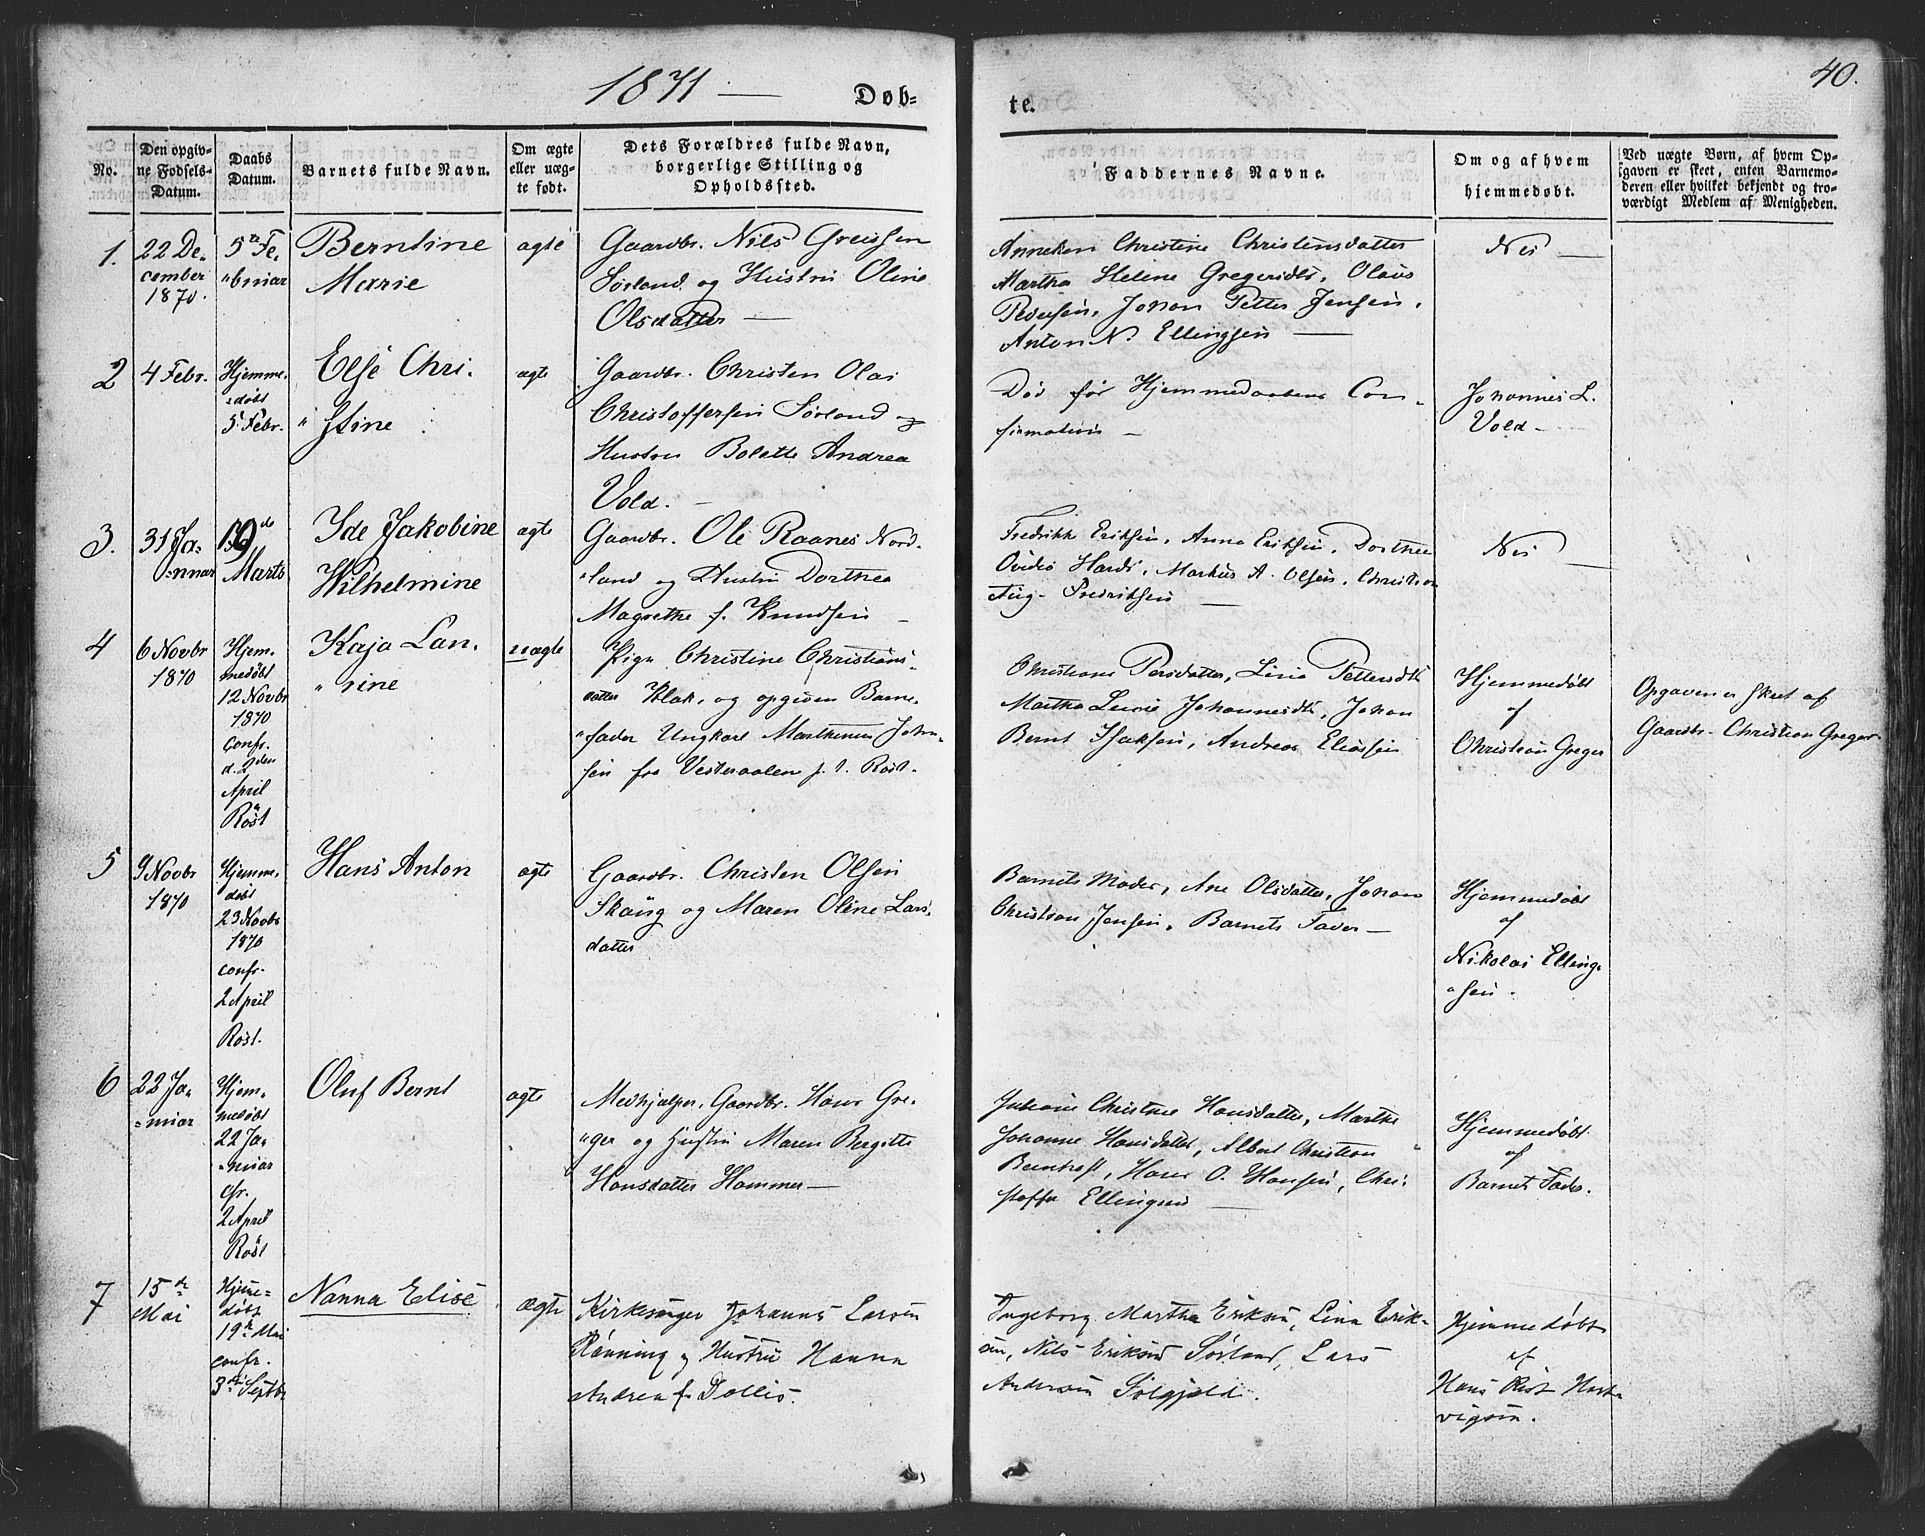 1871 — Døb-
te.
40.
No.
Den opgiv-
ne Fødsels-
Datum.
Daabs
Datum.
Barnets fulde Navn.
Om ægte
eller uæg-
te født.
Dets Forældres fulde Navn,
borgerlige Stilling og
Opholdssted.
Faddernes Navne.
Om og af hvem
hjemmedøbt.
Ved uægte Børn, af hvem Op-
gaven er skeet, enten Barnemo-
deren eller hvilket bekjendt og tro-
værdigt Medlem af Menigheden.
1.
22 De-
cember
1870.
5te Fe-
"bruar
Berntine
Marie
ægte
Gaardbr. Nils Greissen
Sørland og Hustru Oline
Olsdatter —
Anneken Christine Christensdatter
Martha Helene Gregersdtr, Olaus
Pedersen, Johan Petter Jensen,
Anton N. Ellingsen —
Nei —
2
4 Febr.
Hjemme-
døbt
5 Febr.
Else Chri-
" stine
ægte
Gaardbr. Christen Olai
Christoffersen Sørland og
Hustru Bolette Andrea
Vold. —
Død før Hjemmedaabens Con-
firmation —
Johannes L.
Vold —
3.
31 Ja-
"nuar
de
Marts
Ide Jakobine
Wilhelmine
ægte
Gaardbr. Ole Raanes Nord-
"land og Hustru Dorthea
Magrethe f. Knudsen —
Fredrikke Eriksen, Anna Eriksen, Dorthea
Hardt, Markus A. Olsen, Christian
Aug. Fredriksen —
Nei —
4
6 Novbr
1870
Hjem-
medøbt
12 Novbr
1870
Confr.
d. 2den
April
Røst
Kaja Lau-
" rine
uægte
Pige Christine Christians-
datter Klak, og opgiven Barne-
"fader Ungkarl Marthenus Johan-
sen fra Vesteraalen p. t. Røst.
Christiane Persdatter, Lina Pettersdtr
Martha Johannesdtr, Johan
Bernt Isaksen, Andreas Eliassen
Hjemmedøbt
af
Christian Greger
Opgaven er skeet af
Gaardbr. Christian Greger
5
9 Novbr
1870
Hjemme-
døbt
23 Novbr
1870
confr.
2 April
Røst.
Hans Anton
ægte
Gaardbr. Christen Olsen
Skang og Maren Oline Lars-
datter
Barnets Moder, Ane Olsdatter, Johan
Christian Jensen, Barnets Fader —
Hjemmedøbt
af
Nikolai Elling-
"sen.
6
22 Ja-
"nuar
Hjem-
medøbt
22 Ja-
"nuar
cfr.
2 April
Røst
Oluf Bernt
ægte
Medhjælper, Gaardbr. Hans Gre-
"ger og Hustru Maren Bergitte
Hansdatter Hammer —
Juliane Christine Hansdatter, Martha
Johanne Hansdatter, Albert Christian
Hans O. Hansen, Chri-
stoffer Ellingsen —
Hjemmedøbt
af
Barnets Fader.
7
15de
Mai
Hjeme-
døbt
19de Mai
confr.
3die Septbr
Nanna Elise
Ægte
Kirkesanger Johannes Larsen
Rønning og Hustru Hanna
Andrea f. Dollis.
Ingeborg Martha Eriksen, Lina Erik-
sen, Nils Eriksen Sørland, Lars
Andersen Solgjeld.
Hjemmedøbt
af
Hans Rist Hart-
vigsen.